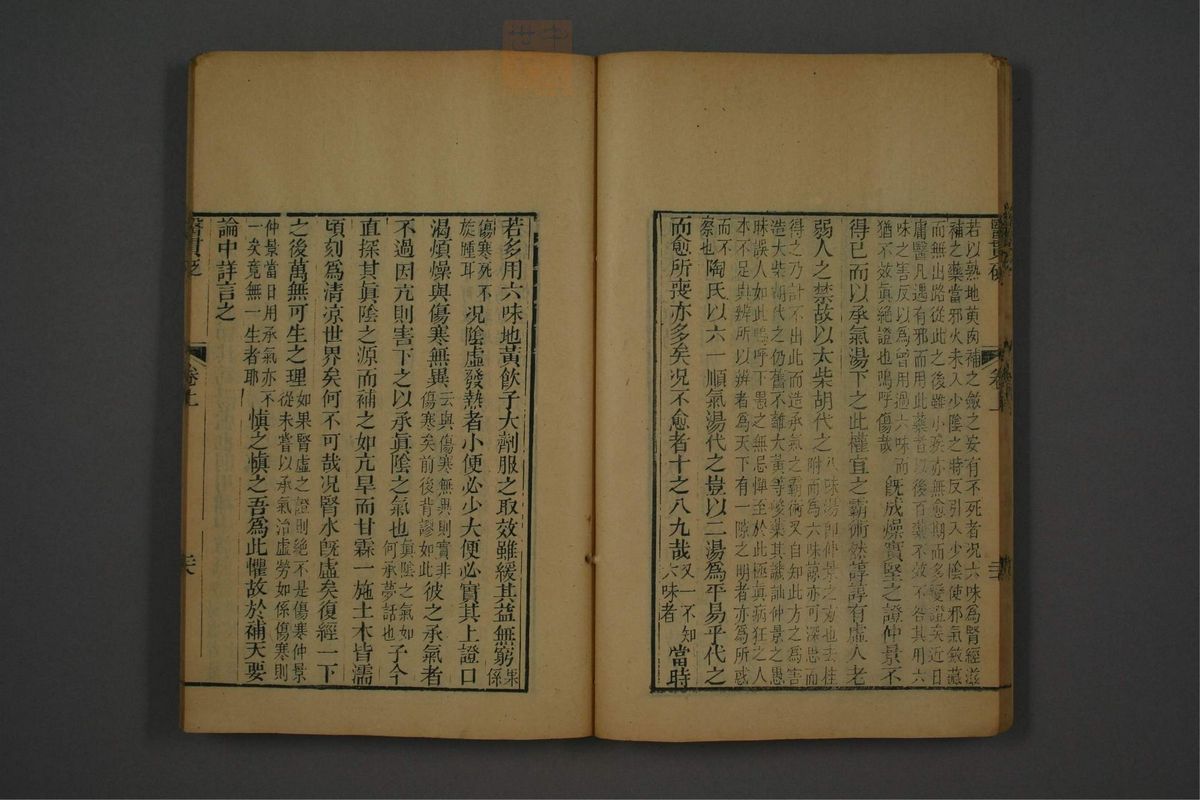 醫貫砭
卷上
若以熟地萸肉補之斂之安有不死者况六味爲腎經滋
補之藥當邪火未入少陰之時反引入少陰使邪氣斂藏
而無出路從此之後雖小疾亦無愈期而多變證矣近日
庸醫凡遇有邪而用此藥者以後百藥不效不咎其用六
味之害反以爲曾用過六味而
猶不效眞絕證也嗚呼傷哉
旣成燥實堅之證仲景不
得已而以承氣湯下之此權宜之霸術然諄諄有虛人老
弱人之禁故以大柴胡代之
八味湯卽仲景之方也去桂
附而爲六味蓋亦可深思而
得之乃計不出此而造承氣之霸術又自知此方之爲害
造大柴胡代之仍舊不離大黃等峻藥其譏訕仲景之愚
昧誤人如此嗚呼下愚之無忌憚至於此極眞病狂之人
本不足與辨所以辨者爲天下有一隙之明者亦爲所惑
察也
陶氏以六一順氣湯代之豈以二湯爲平易乎代之
而愈所喪亦多矣况不愈者十之八九哉
又一不知
六味者
當時
若多用六味地黃飮子大劑服之取效雖緩其益無窮
果係
傷寒死不
旋踵耳
况陰虛發熱者小便必少大便必實其上證口
渴煩燥與傷寒無異
云與傷寒無異則實非
傷寒矣前後背謬如此
彼之承氣者
不過因亢則害下之以承眞陰之氣也
眞陰之氣如
何承夢話也
予今
直探其眞陰之源而補之如亢旱而甘霖一施土木皆濡
頃刻爲清凉世界矣何不可哉况腎水旣虛矣復經一下
之後萬無可生之理
如果腎虛之證則絕不是傷寒仲景
從未嘗以承氣治虛勞如係傷寒則
仲景當日用承氣亦不
一矣竟無一生者耶
愼之愼之吾爲此懼故於補天要
論中詳言之
醫貫砭
卷上